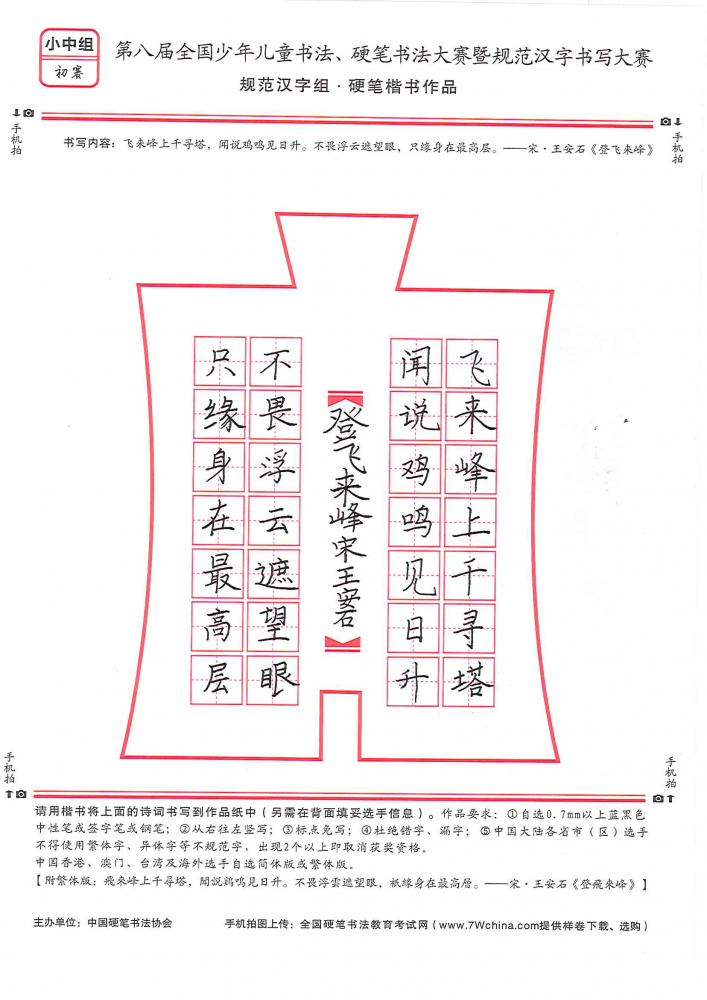 小中组
初赛
第八届全国少年儿童书法、硬笔书法大赛暨规范汉字书写大赛
规范汉字组·硬笔楷书作品
手机拍
手机拍
书写内容：飞来峰上千寻塔，闻说鸡鸣见日升。不畏浮云遮望眼，只缘身在最高层。——宋·王安石《登飞来峰》
飞来峰上千寻塔
闻说鸡鸣见日升
登飞来峰宋王安石
不畏浮云遮望眼
只缘身在最高层
手机拍
手机拍
请用楷书将上面的诗词书写到作品纸中（另需在背面填妥选手信息）。作品要求：①自选0.7mm以上蓝黑色
中性笔或签字笔或钢笔；②从右往左竖写；③标点免写；④杜绝错字、漏字；⑤中国大陆各省市（区）选手
不得使用繁体字、异体字等不规范字，出现2个以上即取消获奖资格。
中国香港、澳门、台湾及海外选手自选简体版或繁体版。
【附繁体版：飛來峰上千尋塔，聞說鷄鳴見日升。不畏浮雲遮望眼，衹緣身在最高層。——宋·王安石《登飛來峰》】
主办单位：中国硬笔书法协会
手机拍图上传：全国硬笔书法教育考试网（www.7Wchina.com提供样卷下载、选购）